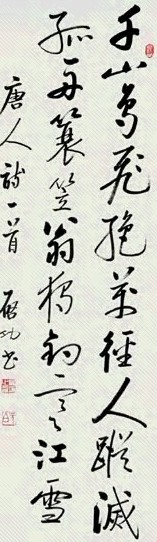 千山鳥飛絶萬徑人蹤滅
孤舟蓑笠翁獨釣寒江雪
唐人詩一首 啓功書